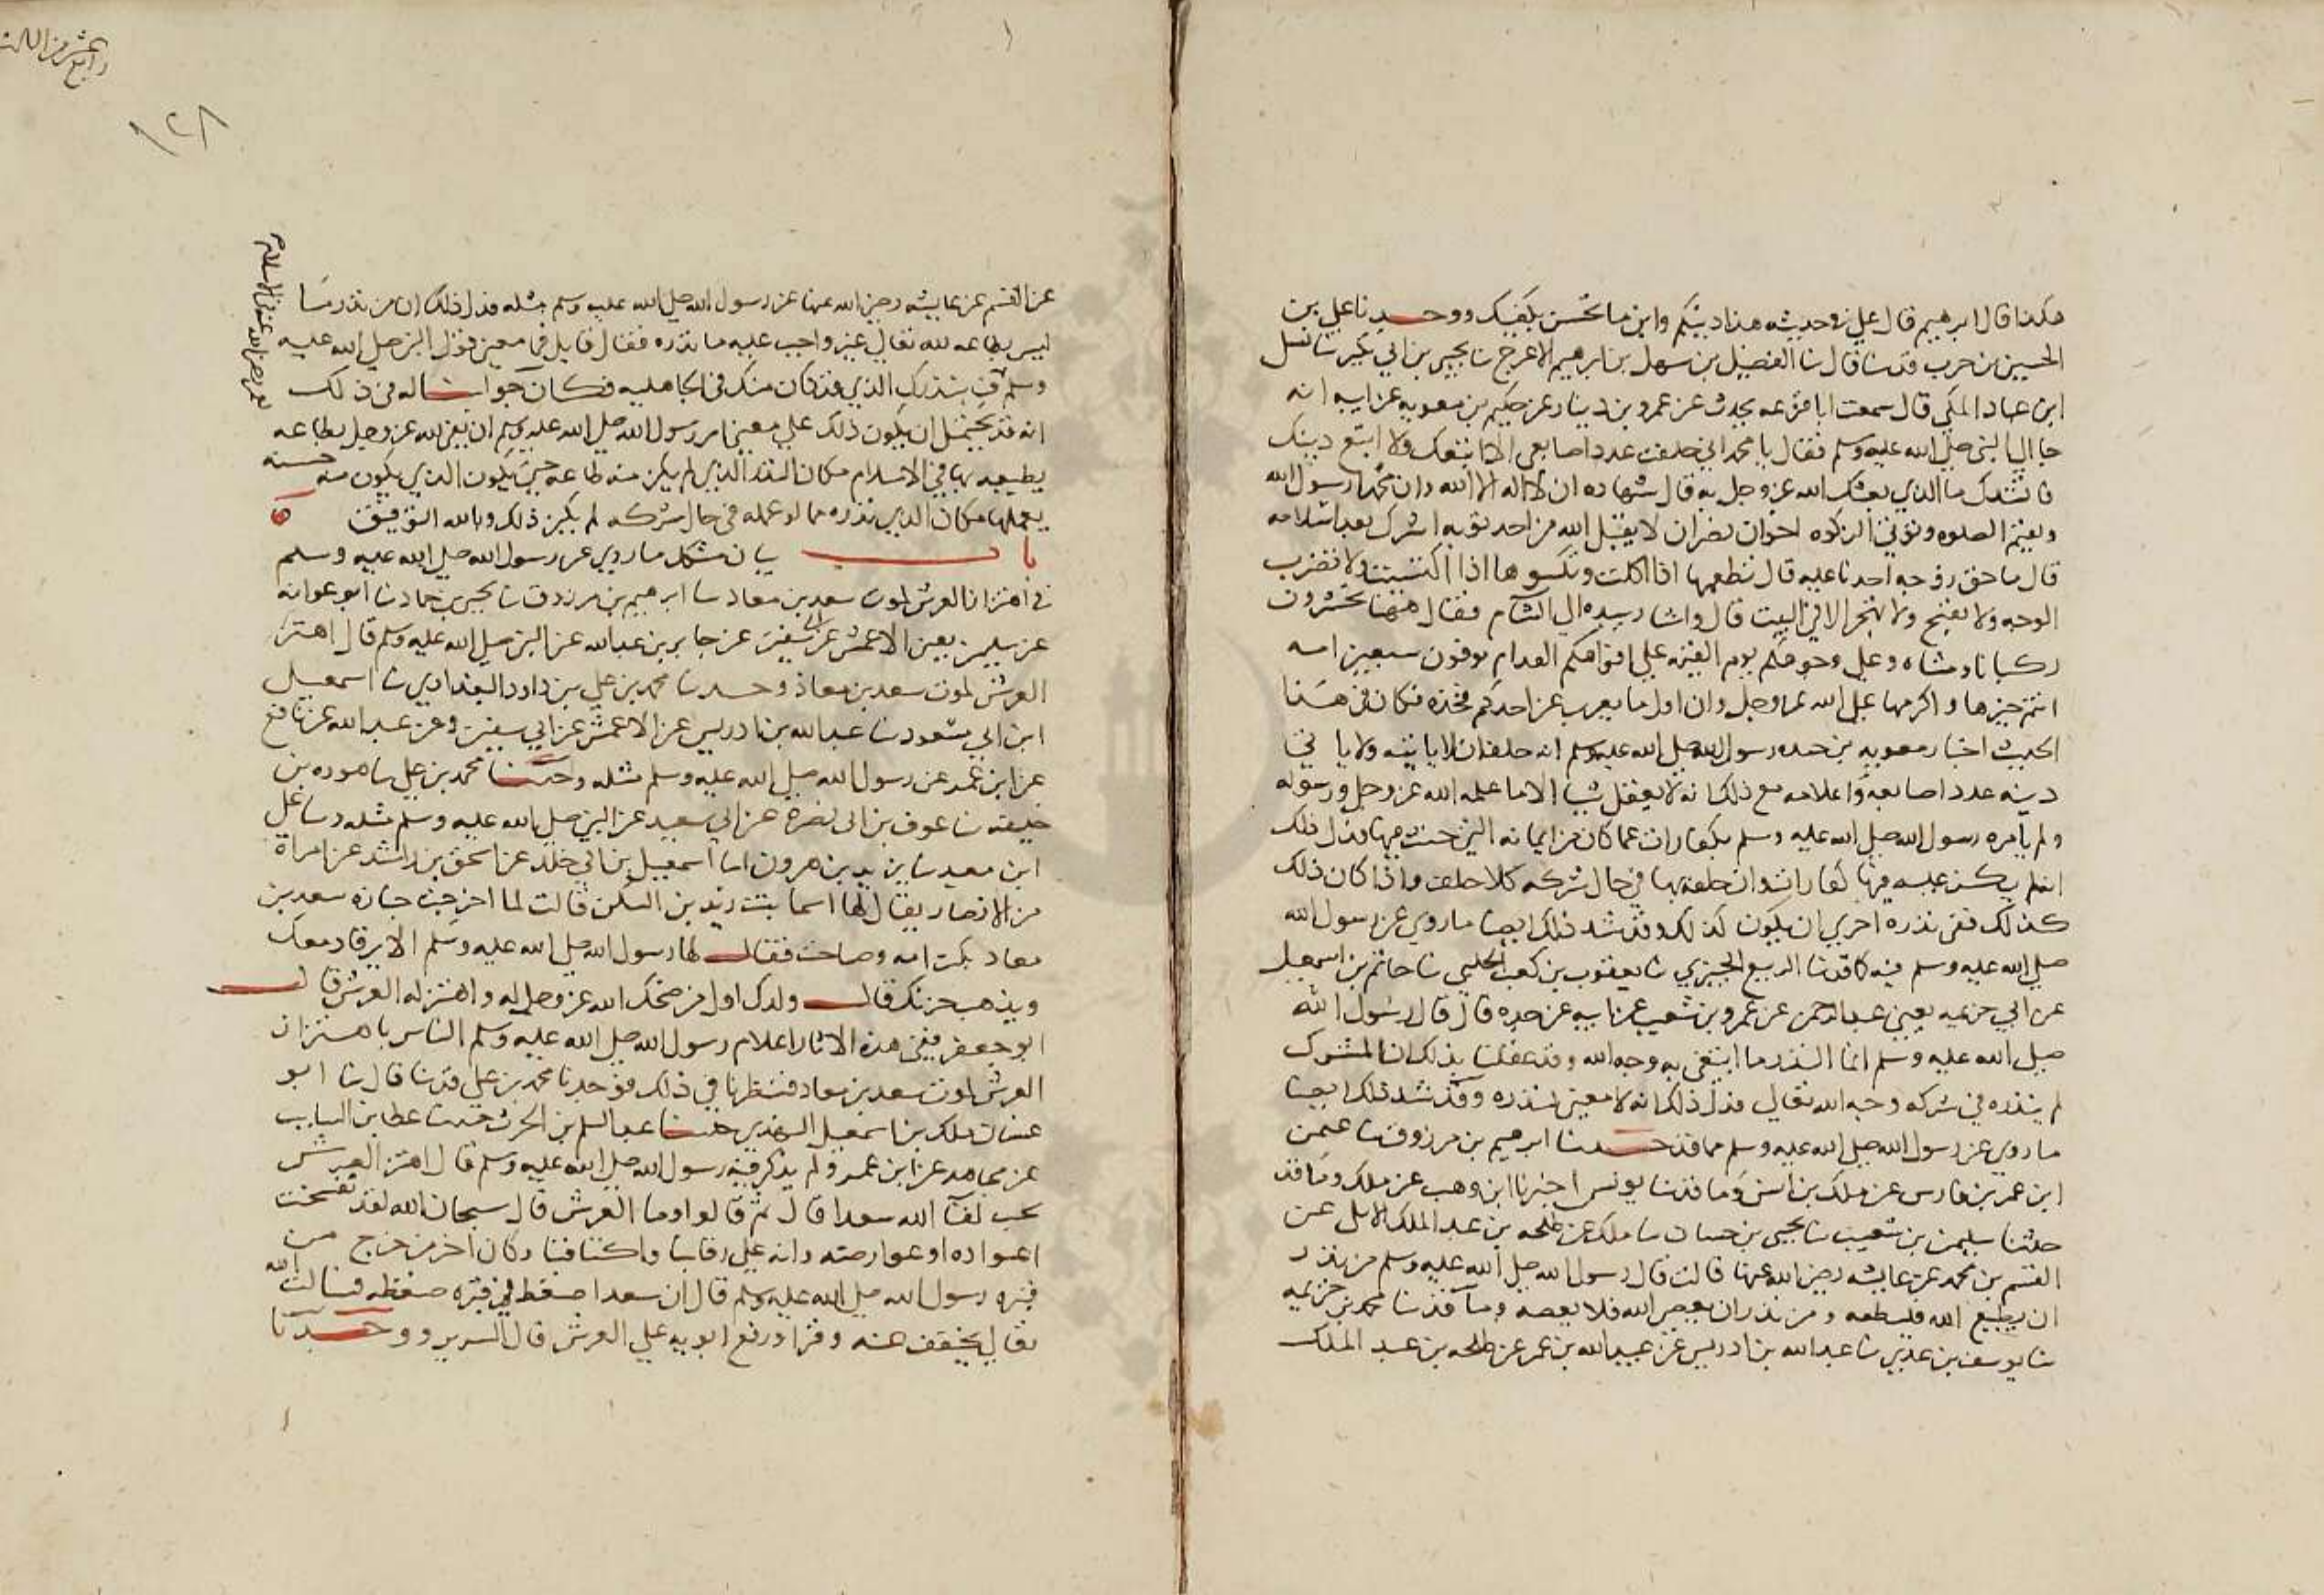 هكذا قال ابرهيم قال علي في حديثه هذا دينكم واين ما تحسن يكفيك ووحدثنا علي بن
الحسين بن حرب قد ثنا قال ثنا الفضيل بن سهل بن ابرهيم الاعرج ثنا يحيى بن ابي بكير ثنا شبل
ابن عباد المكي قال سمعت ابا قزعه يحدث عن عمرو بن دينار عن حكيم بن معويه عن ابيه انه
جا الى النبي صلى الله عليه وسلم فقال يا محمد اني حلفت عدد اصابعي الا اتبعك ولا اتبع دينك
فانشدك ما الذي بعثك الله عز وجل به قال شهاده ان لا اله الا الله وان محمدا رسول الله
وتقيم الصلوه وتوتي الزكوه اخوان نصران لا يقبل الله من احد توبه اشرك بعد اسلامه
قال ما حق زوجه احدنا عليه قال تطعمها اذا اكلت وتكسوها اذا اكتسيت ولا تضرب
الوجه ولا تقبح ولا تهجر الا في البيت قال واشار بيده الى الشام فقال ههنا تحشرون
ركبانا ومشاه وعلى وجوهكم يوم القيمه على افواهكم الفدام توفون سبعين امه
انتم خيرها واكرمها على الله عز وجل وان اول ما يعرب عن احدكم فخذه فكان في هذا
الحديث اخبار معويه بن حيده رسول الله صلى الله عليه وسلم انه حلف ان لا ياتيه ولا ياتي
دينه عدد اصابعه واعلامه مع ذلك انه لا يعقل شيا الا ما علمه الله عز وجل ورسوله
ولم يامره رسول الله صلى الله عليه وسلم بكفارات عما كان من ايمانه التي حنث فيها فدل ذلك
انه لم يكن عليه فيها كفارات وان حلفه بها في حال شركه كلا حلف واذا كان ذلك
كذلك ففي نذره احرى ان يكون كذلك وقد شد ذلك ايضا ما روي عن رسول الله
صلى الله عليه وسلم فيه كما قد ثنا الربيع الجيزي ثنا يعقوب بن كعب الحلبي ثنا حاتم بن اسمعيل
عن ابي حزميه يعني عبد الرحمن عن عمرو بن شعيب عن ابيه عن جده قال قال رسول الله
صلى الله عليه وسلم انما النذر ما ابتغي به وجه الله وقد عقلنا بذلك ان المشرك
لم ينذره في شركه وجه الله تعالى فدل ذلك انه لا معنى لنذره وقد شد ذلك ايضا
ما روي عن رسول الله صلى الله عليه وسلم مما قد حدثنا ابرهيم بن مرزوق ثنا عثمن
ابن عمر بن فارس عن ملك بن انس وما قد ثنا يونس اخبرنا ابن وهب عن ملك وما قد
حدثنا سليمن بن شعيب ثنا يحيى بن حسان ثنا ملك عن طلحه بن عبد الملك الايلي عن
القسم بن محمد عن عايشه رضي الله عنها قالت قال رسول الله صلى الله عليه وسلم من نذر
ان يطيع الله فليطعه ومن نذر ان يعصي الله فلا يعصه وما قد ثنا محمد بن خزيمه
ثنا يوسف بن عدي ثنا عبد الله بن ادريس عن عبيد الله بن عمر عن طلحه بن عبد الملك
١٢٨
عن القسم عن عايشه رضي الله عنها عن رسول الله صلى الله عليه وسلم مثله فدل ذلك ان من نذر ما
ليس بطاعه لله تعالى غير واجب عليه ما نذره فقال قايل فما معنى قول النبي صلى الله عليه
وسلم ف بنذرك الذي قد كان منك في الجاهليه فكان جوابنا له في ذلك
انه قد يحتمل ان يكون ذلك على معنى امر رسول الله صلى الله عليه وسلم ان يفي لله عز وجل بطاعه
يطيعه بها في الاسلام مكان النذر الذي لم يكن منه طاعه حتى يكون الذي يكون منه حسنه
يعملها مكان الذي نذره مما لو عمله في حال شركه لم يكن ذلك وبالله التوفيق
باب بيان مشكل ما روي عن رسول الله صلى الله عليه وسلم
في اهتزاز العرش لموت سعد بن معاد ثنا ابرهيم بن مرزوق ثنا يحيى بن حماد ثنا ابو عوانه
عن سليمن يعني الاعمش عن ابي سفين عن جابر بن عبد الله عن النبي صلى الله عليه وسلم قال اهتز
العرش لموت سعد بن معاذ وحدثنا محمد بن علي بن داود البغدادي ثنا اسمعيل
ابن ابي مسعود ثنا عبد الله بن ادريس عن الاعمش عن ابي سفين وعن عبيد الله عن نافع
عن ابن عمر عن رسول الله صلى الله عليه وسلم مثله وحدثنا محمد بن علي ثنا هوده بن
خليفه ثنا عوف بن ابي نضره عن ابي سعيد عن النبي صلى الله عليه وسلم مثله وثنا علي
ابن معبد ثنا يزيد بن هرون انا اسمعيل بن ابي خلد عن اسحق بن راشد عن امراه
من الانصار يقال لها اسما بنت زيد بن السكن قالت لما اخرجت جنازه سعد بن
معاد بكت امه وصاحت فقال لها رسول الله صلى الله عليه وسلم الا يرقا دمعك
ويذهب حزنك قال ولدك اول من ضحك الله عز وجل له واهتز له العرش قال
ابو جعفر ففي هذه الاثار اعلام رسول الله صلى الله عليه وسلم الناس باهتزاز
العرش لموت سعد بن معاد فنظرنا في ذلك فوجدنا محمد بن علي قد ثنا قال ثنا ابو
غسان ملك بن اسمعيل النهدي حدثنا عبد السلم بن الحرث حدثنا عطا بن السايب
عن مجاهد عن ابن عمر ولم يذكر فيه رسول الله صلى الله عليه وسلم قال اهتز العرش
بحب لقا الله سعدا قال ثم قالوا وما العرش قال سبحان الله لقد تفسخت
اعواده او عوارضه وانه على رقابنا واكتافنا وكان اخر من خرج من
قبره رسول الله صلى الله عليه وسلم قال ان سعدا ضغط في قبره ضغطه فسالت الله
تعالى يخفف عنه وقرا ورفع ابويه على العرش قال السرير ووحدثنا